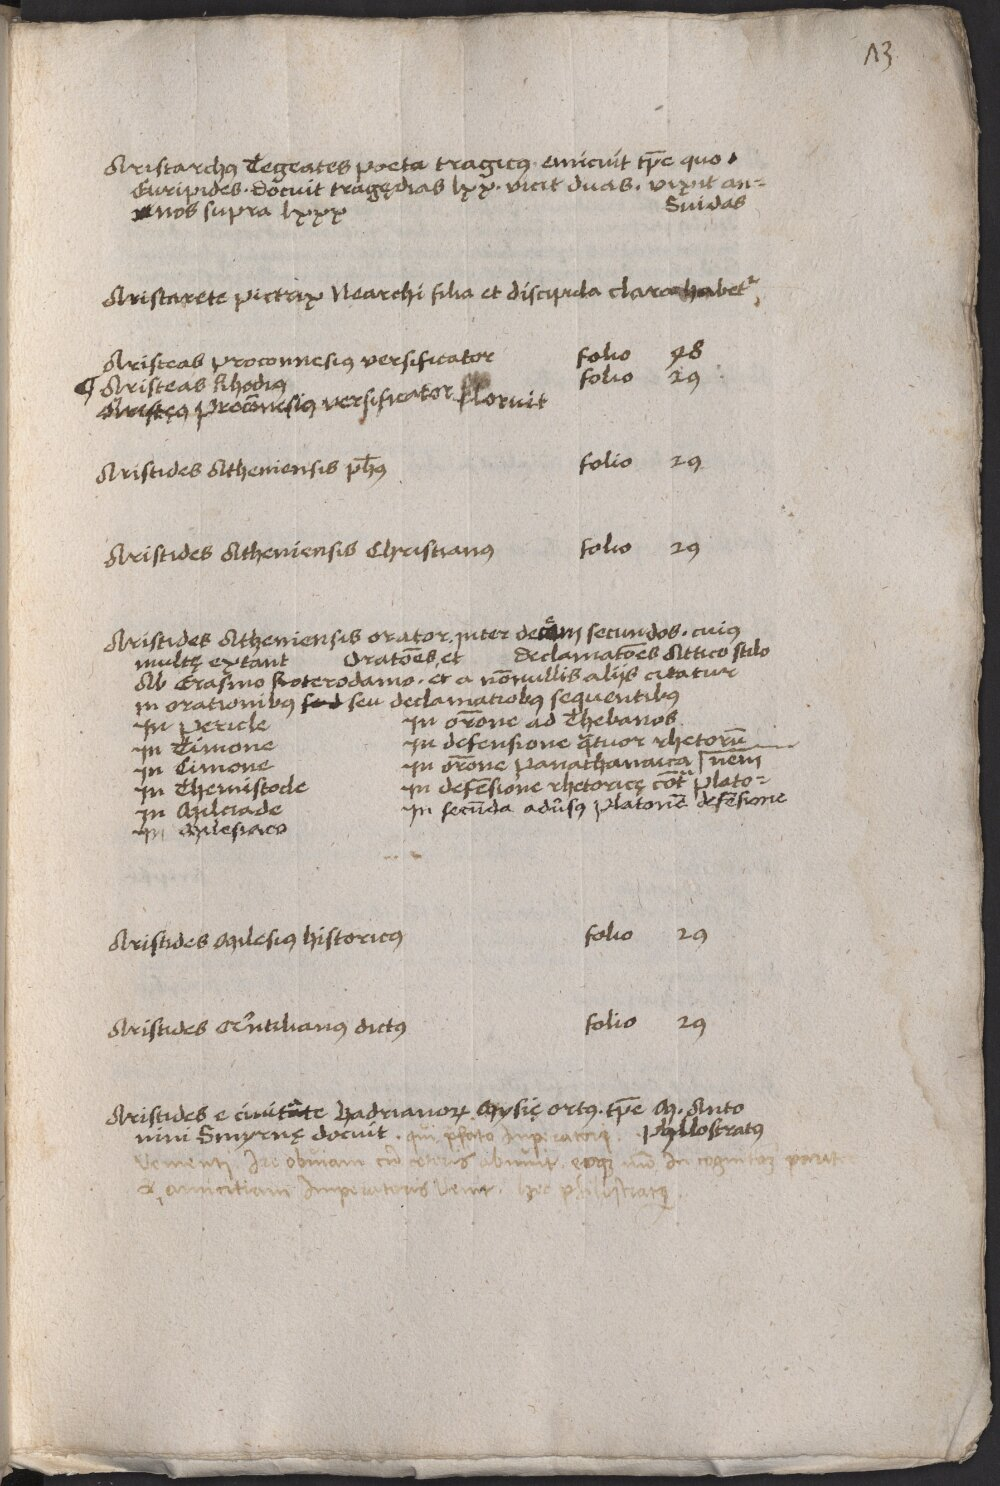 13
Aristarchꝰ Tegeates poeta tragicꝰ. emicuit tp̄e quo
Euripides. Docuit tragędias lxx. vicit duas. vixit an=
nos supra lxxx Suidas
Aristarete pictrix Nearchi filia et discipula clara habet᷑
Aristeas proconnesiꝰ versificator folio 28
¶ Aristeas Rhodiꝰ folio 29
Aristęꝰ Procōnesiꝰ versificator floruit
Aristides Atheniensis ph̄ꝰ folio 29
Aristides Atheniensis Christianꝰ folio 29
Aristides Atheniensis orator. inter decem secundos. cuiꝰ
multę extant Oratōes, et declamatōes Attico stilo
Ab Erasmo Roterodamo. et a nōnullis alijs citatur
in orationibꝰ sed seu declamatiobꝰ sequentibꝰ
In Pericle In or̄one ad Thebanos
In Timone In defensione q̄tuor rhetorū
In Cimone In or̄one panathanaica
In Themistode In defēsione rhetoricę cōtᷓ Plato= nem
In Milciade In secūda adūsꝰ Platonē defēsione
In Milesiaco
Aristides Milesiꝰ historicꝰ folio 29
Aristides Qͥntilianꝰ dictꝰ folio 29
Aristides e ciuitate Hadrianoꝝ Mysię ortꝰ. tp̄e M. Anto
nini Smyrnę docuit. qui p̄fato Imperatori Phylostratꝰ
Venienti Ire obuiam
& amicitiam Imperatoris venit. hec